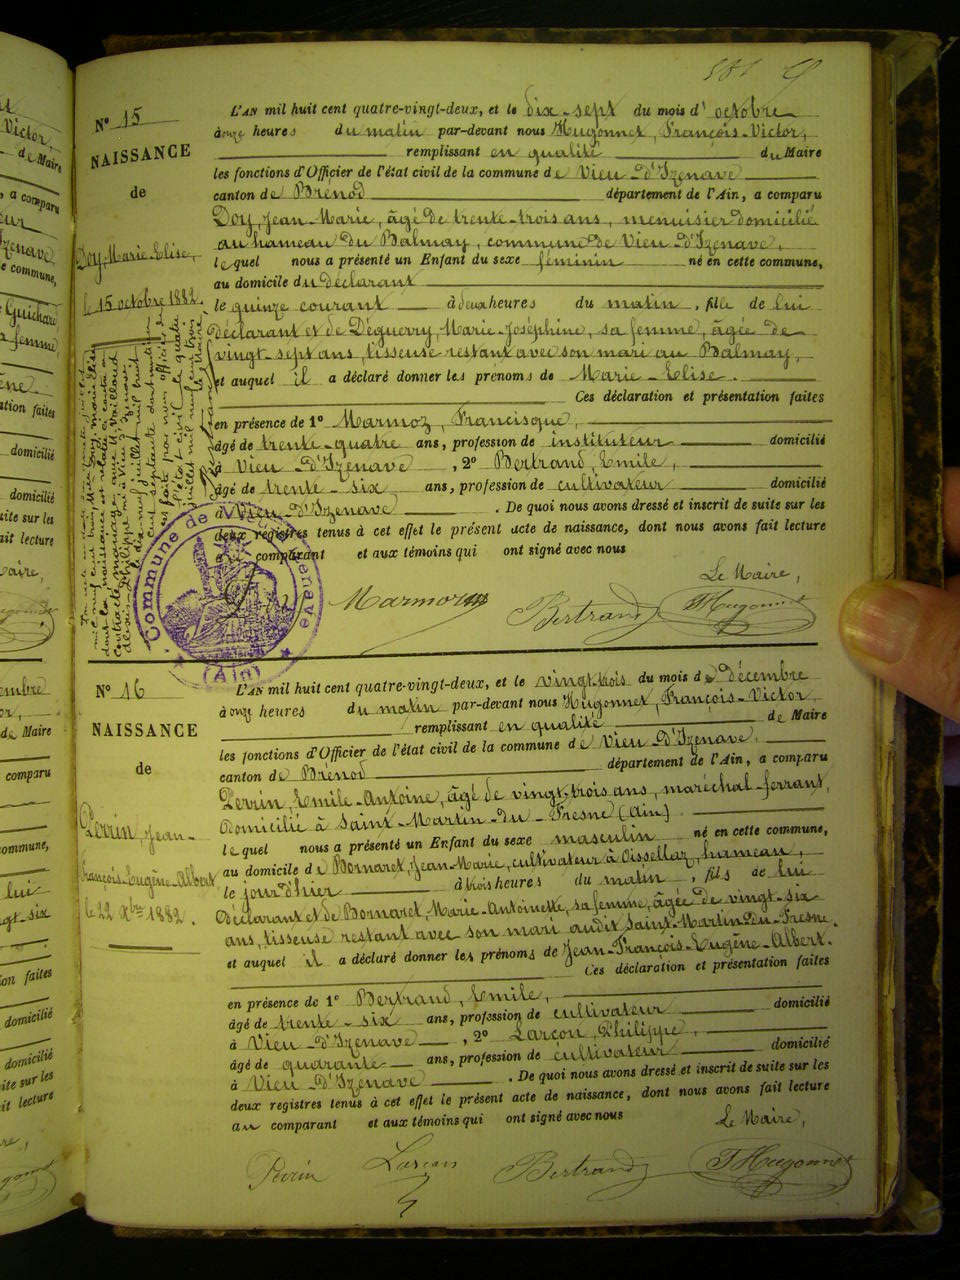 N° 15
NAISSANCE
de
Doy, Marie-Elise,
le 15 octobre 1882.
L'AN mil huit cent quatre-vingt-deux, et le dix-sept du mois d'octobre
à onze heures du matin par-devant nous Hugonnet, François-Victor,
remplissant en qualité du Maire
les fonctions d'Officier de l'état civil de la commune de Vieu-d'Izenave
canton de Brénod département de l'Ain, a comparu
Doy, Jean-Marie, âgé de trente-trois ans, menuisier domicilié
au hameau du Balmay, commune de Vieu-d'Izenave,
lequel nous a présenté un Enfant du sexe féminin né en cette commune,
au domicile du déclarant
le quinze courant à deux heures du matin, fille de lui
déclarant et de Déguerry, Marie-Joséphine, sa femme, âgée de
vingt-sept ans, tisseuse restant avec son mari au Balmay,
et auquel il a déclaré donner les prénoms de Marie-Elise.
Ces déclaration et présentation faites
en présence de 1° Marmoz, Francisque,
âgé de trente-quatre ans, profession de instituteur domicilié
à Vieu-d'Izenave, 2° Bertrand, Emile,
âgé de trente-six ans, profession de cultivateur domicilié
à Vieu-d'Izenave. De quoi nous avons dressé et inscrit de suite sur les
deux registres tenus à cet effet le présent acte de naissance, dont nous avons fait lecture
au comparant et aux témoins qui ont signé avec nous
Le Maire,
Marmoz
Bertrand
Hugonnet
Commune de Vieu d'Izenave
(Ain)
N° 16
NAISSANCE
de
Perrin, Jean-
François-Eugène-Albert
le 22 Xbre 1882.
L'AN mil huit cent quatre-vingt-deux, et le vingt-trois du mois de décembre
à onze heures du matin par-devant nous Hugonnet, François-Victor,
remplissant en qualité de Maire
les fonctions d'Officier de l'état civil de la commune de Vieu-d'Izenave.
canton de Brénod département de l'Ain, a comparu
Perrin, Emile-Antoine, âgé de vingt-trois ans, maréchal-ferrant,
domicilié à Saint-Martin-du-Fresne (Ain).
lequel nous a présenté un Enfant du sexe masculin né en cette commune,
au domicile de Bornaret, Jean-Marie, cultivateur à Oissellaz, hameau,
le jour d'hier à trois heures du matin, fils de lui
déclarant et de Bornaret, Marie-Antoinette, sa femme, âgée de vingt-six
ans, tisseuse restant avec son mari audit Saint-Martin-du-Fresne.
et auquel il a déclaré donner les prénoms de Jean-François-Eugène-Albert.
Ces déclaration et présentation faites
en présence de 1° Bertrand, Emile,
âgé de trente-six ans, profession de cultivateur domicilié
à Vieu-d'Izenave, 2° Larçon, Philippe,
âgé de quarante ans, profession de cultivateur domicilié
à Vieu-d'Izenave. De quoi nous avons dressé et inscrit de suite sur les
deux registres tenus à cet effet le présent acte de naissance, dont nous avons fait lecture
au comparant et aux témoins qui ont signé avec nous
Le Maire,
Perrin
Larçon
Bertrand
Hugonnet